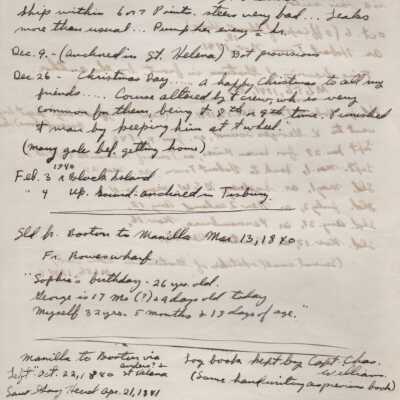 Ship within 6 or 7 Points. steers very bad... Leaks
more than usual... Pump her every 2 hr
Dec. 9. - (anchored in St. Helena) Bot provisions
Dec 26 - Christmas Day.... a happy Christmas to all my
friends.... Course altered by crew, wh is very
common for them, being 8th or 9th time. Punished
1 man by keeping him at wheel.
(Many gales bef. getting home)
1840
Feb. 3 Block Island
" 4 Up. Sound. anchored in Tisbury.
Sld fr. Boston to Manilla Mar 13, 1840
Fr. Rowes wharf
"Sophia's birthday - 26 yrs. old.
George is 17 Mo (?) 29 days old today
Myself 32 yrs. 5 months & 13 days of age."
Manilla to Boston via
Anders? &
Left Oct. 22, 1840 St Helena
Saw Shag Head Apr. 21, 1841
Log book kept by Capt. Chas.
William.
(Same handwriting as previous book)